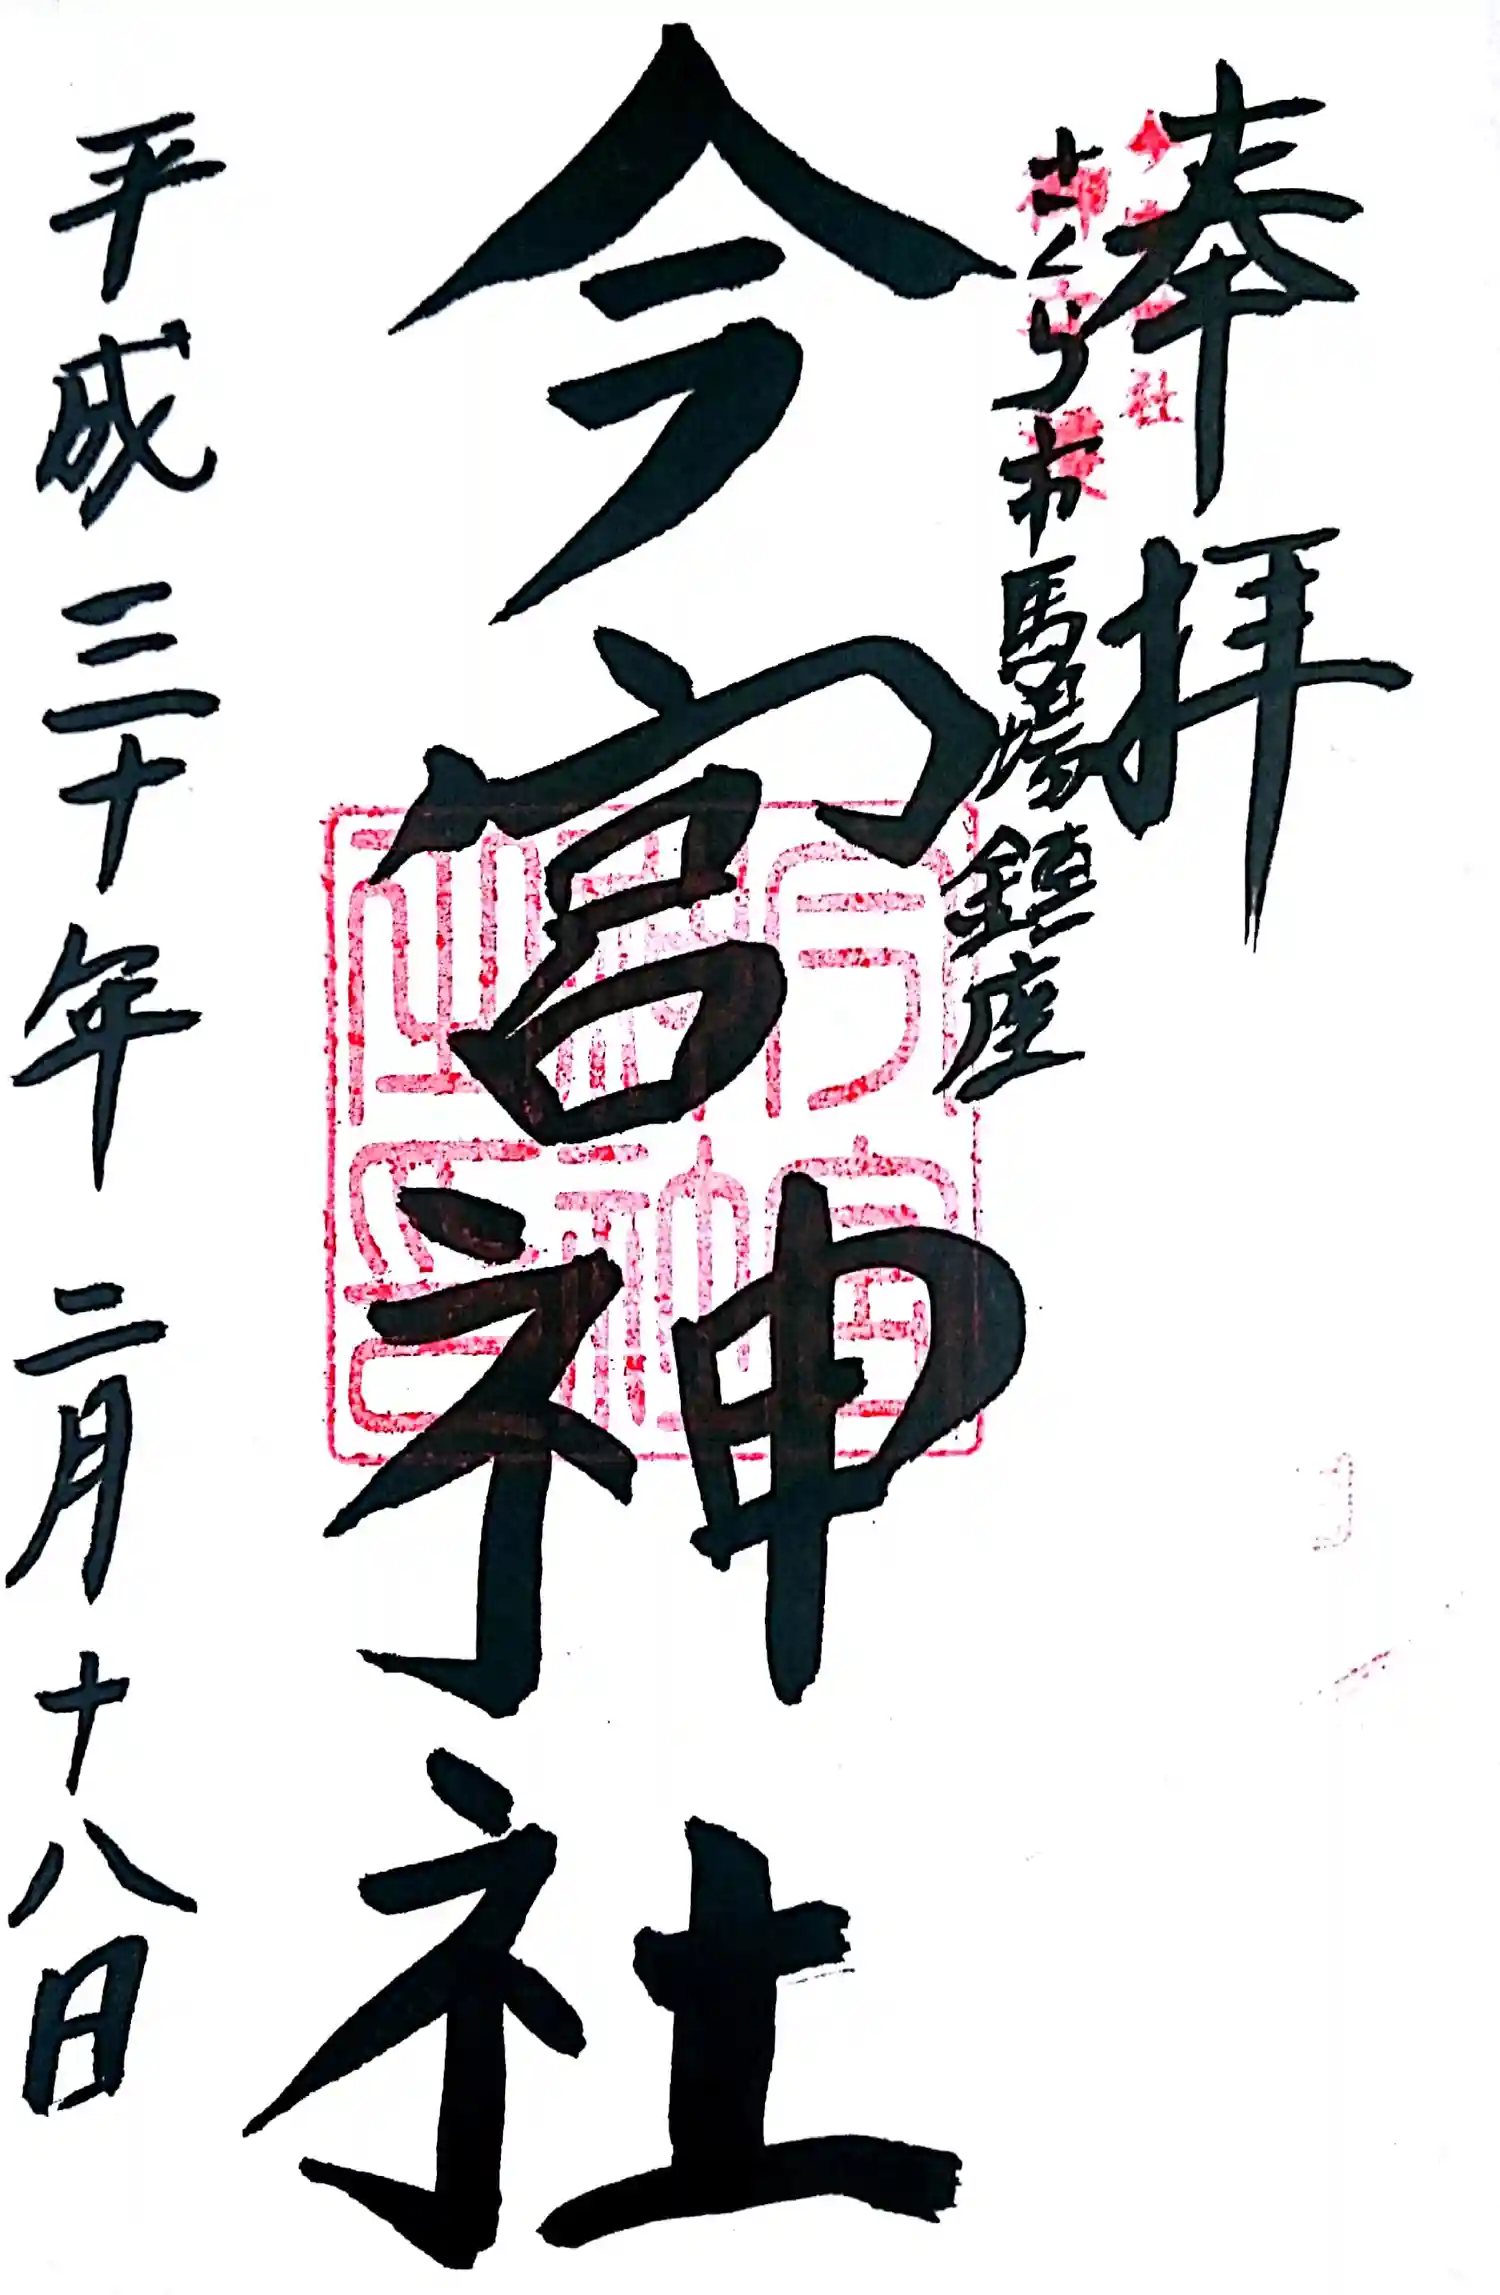 奉拝
今宮神社
さくら市馬場鎮座
今宮神社
平成三十年二月十八日